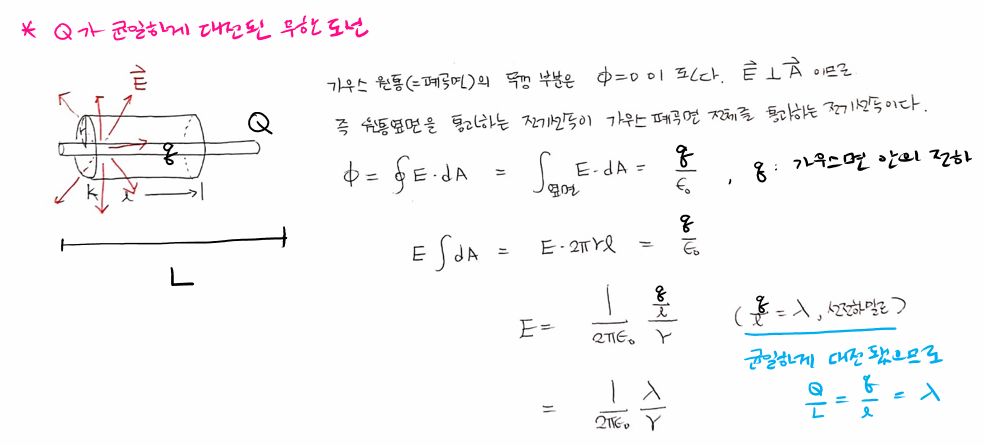 * Q가 균일하게 대전된 무한 도선
가우스 원통(=폐곡면)의 뚜껑 부분은 Φ=0 이 된다. E⃗ ⊥ A⃗ 이므로
즉 원통옆면을 통과하는 전기선속이 가우스 폐곡면 전체를 통과하는 전기선속이다.
E⃗
Q
r
q
l
L
Φ = ∮E·dA = ∫옆면 E·dA = q/ε₀ , q: 가우스면 안의 전하
E∫dA = E·2πrl = q/ε₀
E = 1/2πε₀ (q/l)/r (q/l = λ, 선전하밀도)
균일하게 대전됐으므로
= 1/2πε₀ λ/r
Q/L = q/l = λ